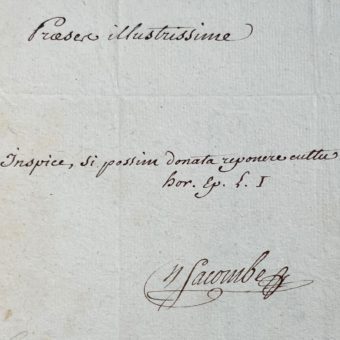 Præses illustrissime
Inspice, si possim donata reponere cultu
hor. Ep. L. I
Lacombe